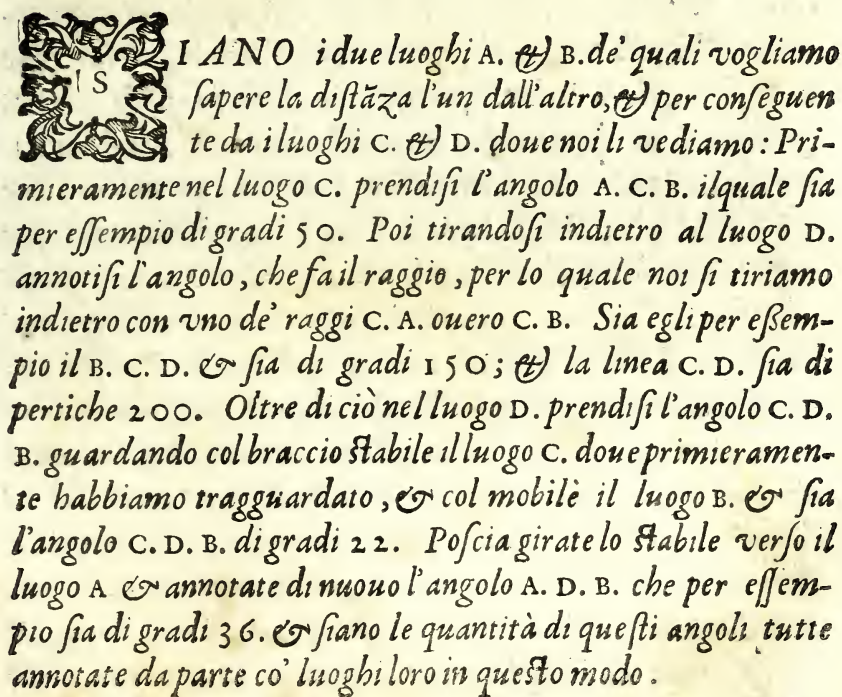 SIANO i due luoghi A. & B. de' quali vogliamo
ſapere la diſtãza l'un dall'altro, & per conſeguen
te da i luoghi C. & D. doue noi li vediamo: Pri-
mieramente nel luogo C. prendiſi l'angolo A. C. B. ilquale ſia
per eſſempio di gradi 50. Poi tirandoſi indietro al luogo D.
annotiſi l'angolo, che fa il raggio, per lo quale noi ſi tiriamo
indietro con vno de' raggi C. A. ouero C. B. Sia egli per eſſem-
pio il B. C. D. & ſia di gradi 150; & la linea C. D. ſia di
pertiche 200. Oltre di ciò nel luogo D. prendiſi l'angolo C. D.
B. guardando col braccio ſtabile il luogo C. doue primieramen-
te habbiamo tragguardato, & col mobilè il luogo B. & ſia
l'angolo C. D. B. di gradi 22. Poſcia girate lo ſtabile verſo il
luogo A & annotate di nuouo l'angolo A. D. B. che per eſſem-
pio ſia di gradi 36. & ſiano le quantità di queſti angoli tutte
annotate da parte co' luoghi loro in queſto modo.